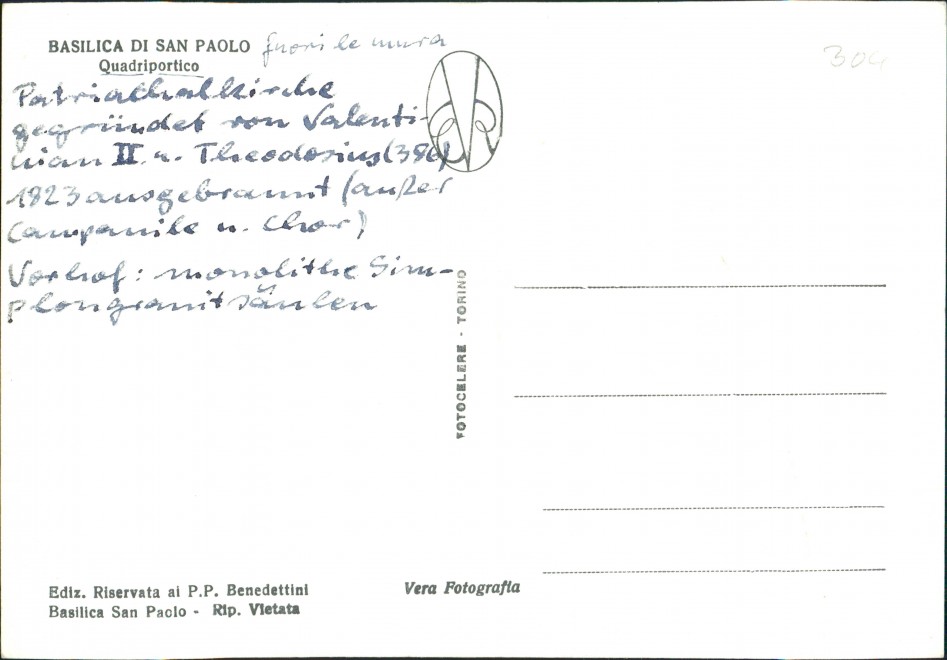 BASILICA DI SAN PAOLO fuori le mura
Quadriportico
304
Patriarchalkirche
gegründet von Valenti-
nian II. u. Theodosius (386)
1823 ausgebrannt (außer
Campanile u. Chor)
Vorhof: monolithe Sim-
plongranitsäulen
FOTOCELERE - TORINO
Ediz. Riservata ai P.P. Benedettini
Basilica San Paolo - Rip. Vietata
Vera Fotografia